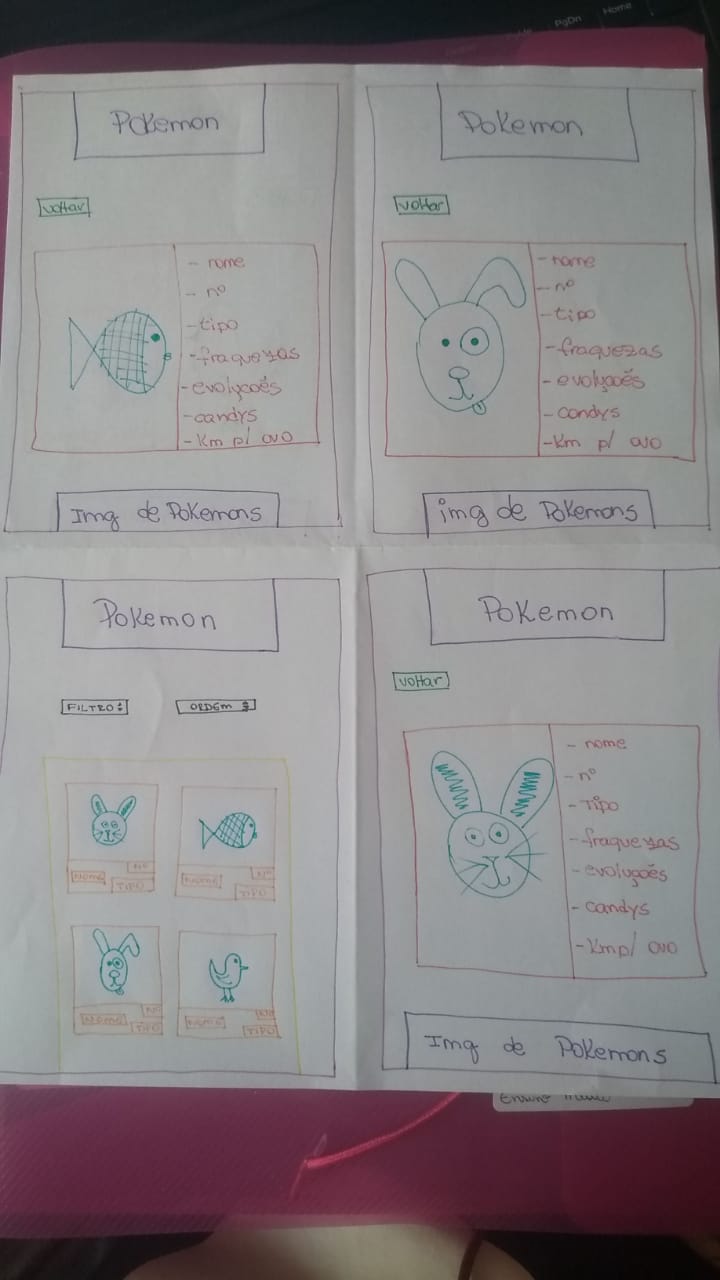 PgDn
Home
Pokemon
voltar
- nome
- nº
- tipo
- fraquezas
- evoluçoés
- candys
- Km p/ ovo
Img de Pokemons
Pokemon
voltar
- nome
- nº
- tipo
- fraquezas
- evoluçoés
- candys
- Km p/ ovo
img de Pokemons
Pokemon
FILTRO
ORDEM
Nº
Nome
TIPO
Nº
Nome
TIPO
Nº
Nome
TIPO
Nº
Nome
TIPO
Pokemon
voltar
- nome
- nº
- Tipo
- fraquezas
- evoluçoés
- candys
- Km p/ ovo
Img de Pokemons